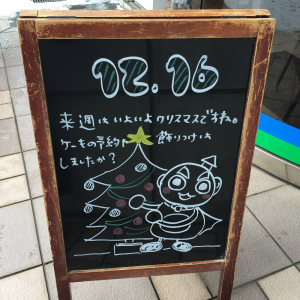 12.16
来週はいよいよクリスマスですね。
ケーキの予約、飾りつけは
しましたか?